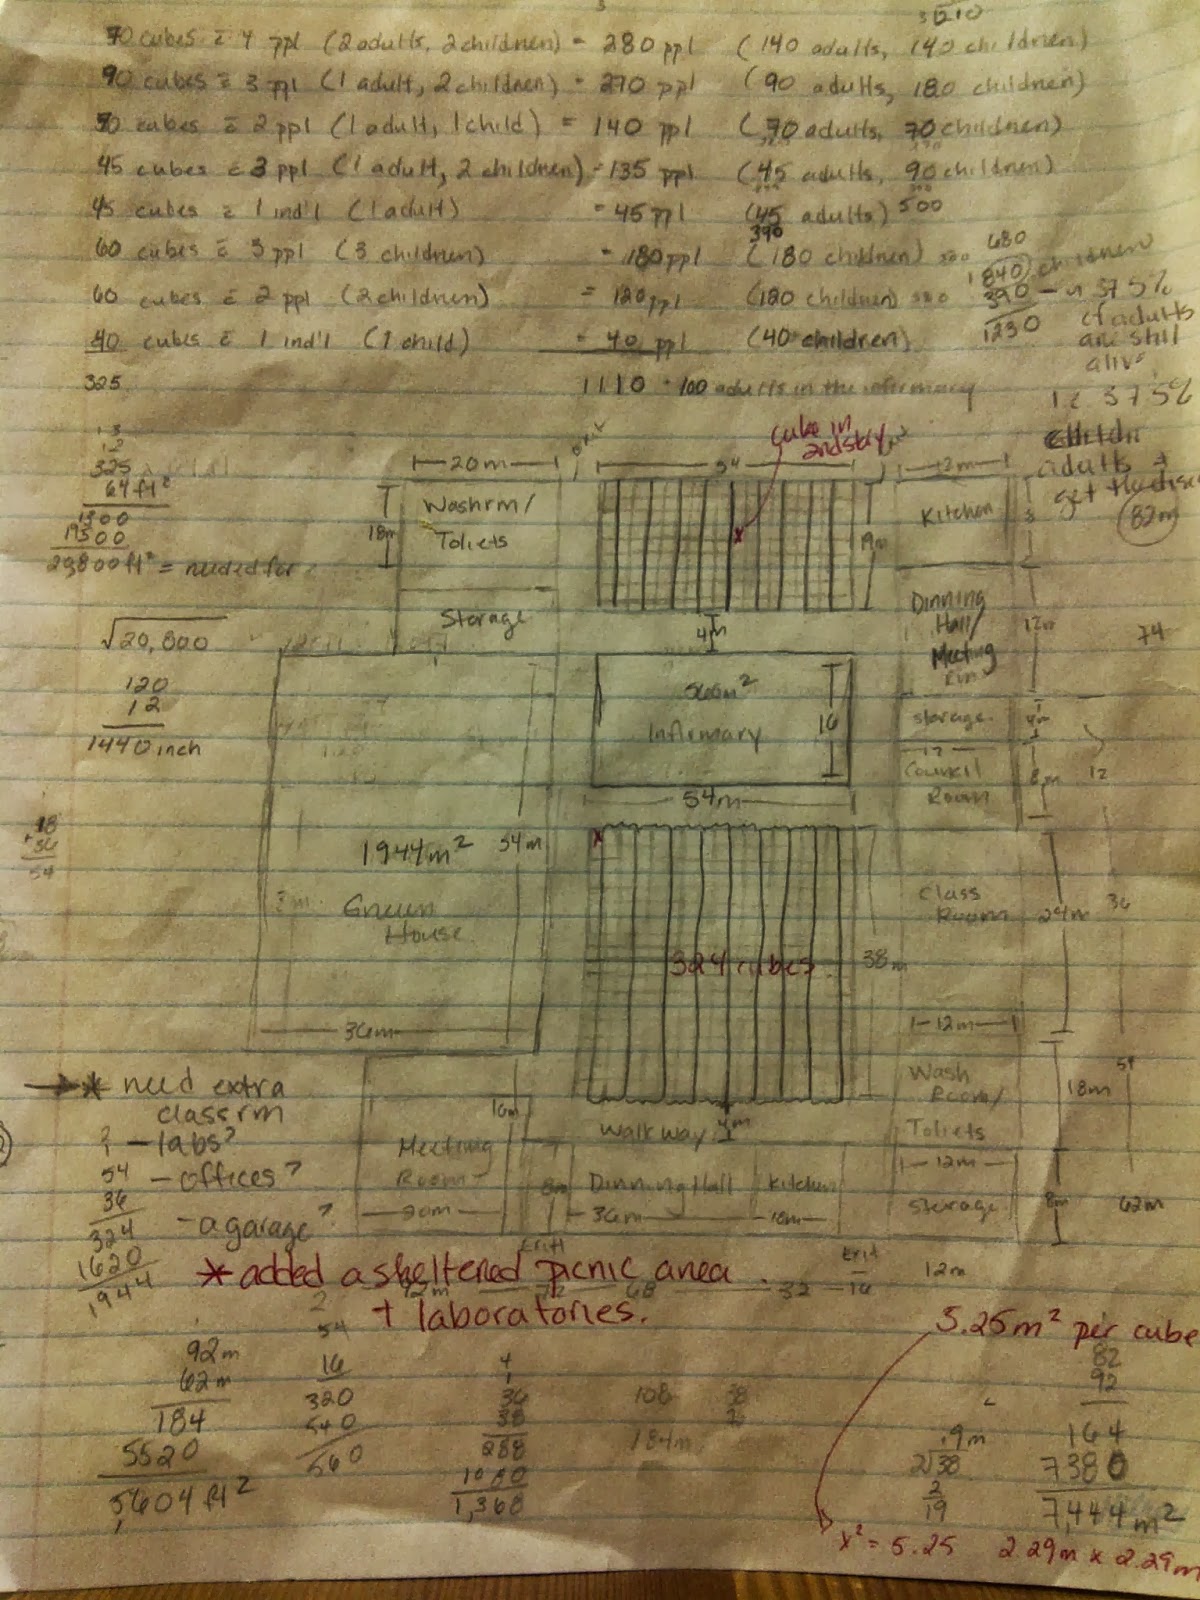 70 cubes = 4 ppl (2 adults, 2 children) = 280 ppl (140 adults, 140 children)
90 cubes = 3 ppl (1 adult, 2 children) = 270 ppl (90 adults, 180 children)
70 cubes = 2 ppl (1 adult, 1 child) = 140 ppl (70 adults, 70 children)
45 cubes = 3 ppl (1 adult, 2 children) = 135 ppl (45 adults, 90 children)
45 cubes = 1 ind'l (1 adult) = 45 ppl (45 adults) 500
390
60 cubes = 3 ppl (3 children) = 180 ppl (180 children)
680
60 cubes = 2 ppl (2 children) = 120 ppl (120 children)
840 children
390 37.5%
1230 of adults
are still
alive
40 cubes = 1 ind'l (1 child) = 40 ppl (40 children)
325 1110 100 adults in the infirmary
37.5%
adults
get
82m
325
64 ft²
1300
19500
20,800 ft² = needed for
√20,800
120
12
1440 inch
cube in
2nd story
20m
54
12m
Washrm/
Toliets
18m
19m
Kitchen
Storage
4m
Dinning
Hall/
Meeting
Rm
12m
74
Infirmary
16
54m
storage
4m
Council
Room
8m
12
18
+36
54
1944m²
54m
Green
House
36m
324 cubes
38m
Class
Room
24m
36
12m
Wash
Room/
Toliets
18m
54
→* need extra
classrm
? - labs?
- offices?
- a garage?
54
36
324
1620
1944
Meeting
Room
20m
16m
Walkway
4m
8m
Dinning Hall
36m
Kitchen
18m
12m
storage
8m
62m
Exit
Exit
92m
68
32
16
12m
* added a sheltered picnic area
+ laboratories.
92m
62m
184
5520
5,604 ft²
2
54
16
320
540
560
4
1
36
38
288
1080
1,368
108
184m
38
5.25m² per cube
82
92
164
7380
7,444 m²
19m
2√38
2
19
x² = 5.25 2.29m x 2.29m